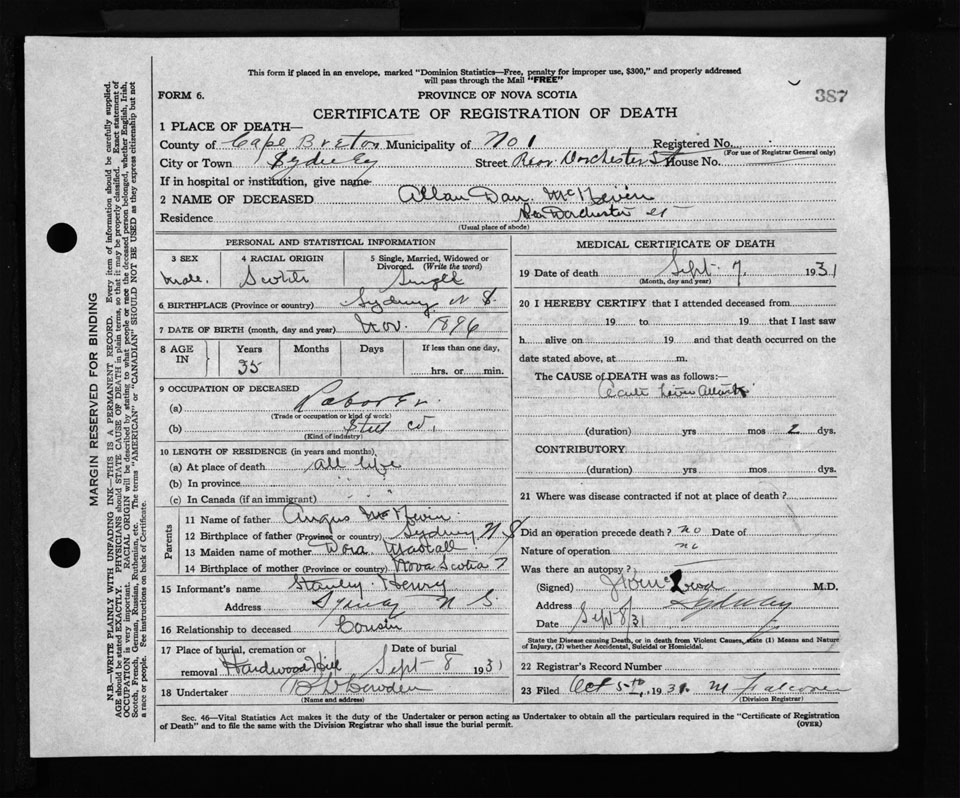 This form if placed in an envelope, marked "Dominion Statistics—Free, penalty for improper use, $300," and properly addressed
will pass through the Mail "FREE"
FORM 6.
PROVINCE OF NOVA SCOTIA
387
CERTIFICATE OF REGISTRATION OF DEATH
1 PLACE OF DEATH—
County of Cape Breton Municipality of No 1 Registered No.
(For use of Registrar General only)
City or Town Sydney Street Rear Dorchester St House No.
If in hospital or institution, give name
2 NAME OF DECEASED Allan Dan McNevin
Residence Rear Dorchester St
(Usual place of abode)
PERSONAL AND STATISTICAL INFORMATION
3 SEX
male
4 RACIAL ORIGIN
Scotch
5 Single, Married, Widowed or Divorced. (Write the word)
Single
6 BIRTHPLACE (Province or country) Sydney N S.
7 DATE OF BIRTH (month, day and year) Nov. 1896
8 AGE IN
Years Months Days If less than one day,
35 hrs. or min.
9 OCCUPATION OF DECEASED
(a) Laborer
(Trade or occupation or kind of work)
(b) Steel Co.
(Kind of industry)
10 LENGTH OF RESIDENCE (in years and months)
(a) At place of death all life
(b) In province " "
(c) In Canada (if an immigrant) " "
Parents
11 Name of father Angus McNevin
12 Birthplace of father (Province or country) Sydney N S
13 Maiden name of mother Dora
14 Birthplace of mother (Province or country) Nova Scotia ?
15 Informant's name Stanley Henry
Address Sydney N S
16 Relationship to deceased Cousin
17 Place of burial, cremation or removal Hardwood Hill
Date of burial Sept 8 1931
18 Undertaker
(Name and address)
MEDICAL CERTIFICATE OF DEATH
19 Date of death Sept 7. 1931
(Month, day and year)
20 I HEREBY CERTIFY that I attended deceased from
19 to 19 that I last saw
h alive on 19 and that death occurred on the
date stated above, at m.
The CAUSE of DEATH was as follows:—
Acute
(duration) yrs mos 2 dys.
CONTRIBUTORY
(duration) yrs mos dys.
21 Where was disease contracted if not at place of death?
Did an operation precede death? no Date of
Nature of operation no
Was there an autopsy?
(Signed) M.D.
Address Sydney
Date Sept 8/31
State the Disease causing Death, or in death from Violent Causes, state (1) Means and Nature
of Injury, (2) whether Accidental, Suicidal or Homicidal.
22 Registrar's Record Number
23 Filed Oct 5th, 1931. M Falconer
(Division Registrar)
Sec. 46—Vital Statistics Act makes it the duty of the Undertaker or person acting as Undertaker to obtain all the particulars required in the "Certificate of Registration
of Death" and to file the same with the Division Registrar who shall issue the burial permit.
(OVER)
MARGIN RESERVED FOR BINDING
N.B.—WRITE PLAINLY WITH UNFADING INK—THIS IS A PERMANENT RECORD. Every item of information should be carefully supplied.
AGE should be stated EXACTLY. PHYSICIANS should STATE CAUSE OF DEATH in plain terms, so that it may be properly classified. Exact statement of
OCCUPATION is very important. RACIAL ORIGIN will be described by stating to what people or race the deceased person belonged, whether English, Irish,
Scotch, French, German, Russian, Ruthenian, etc. The terms "AMERICAN" or "CANADIAN" SHOULD NOT BE USED as they express citizenship but not
a race or people. See instructions on back of Certificate.